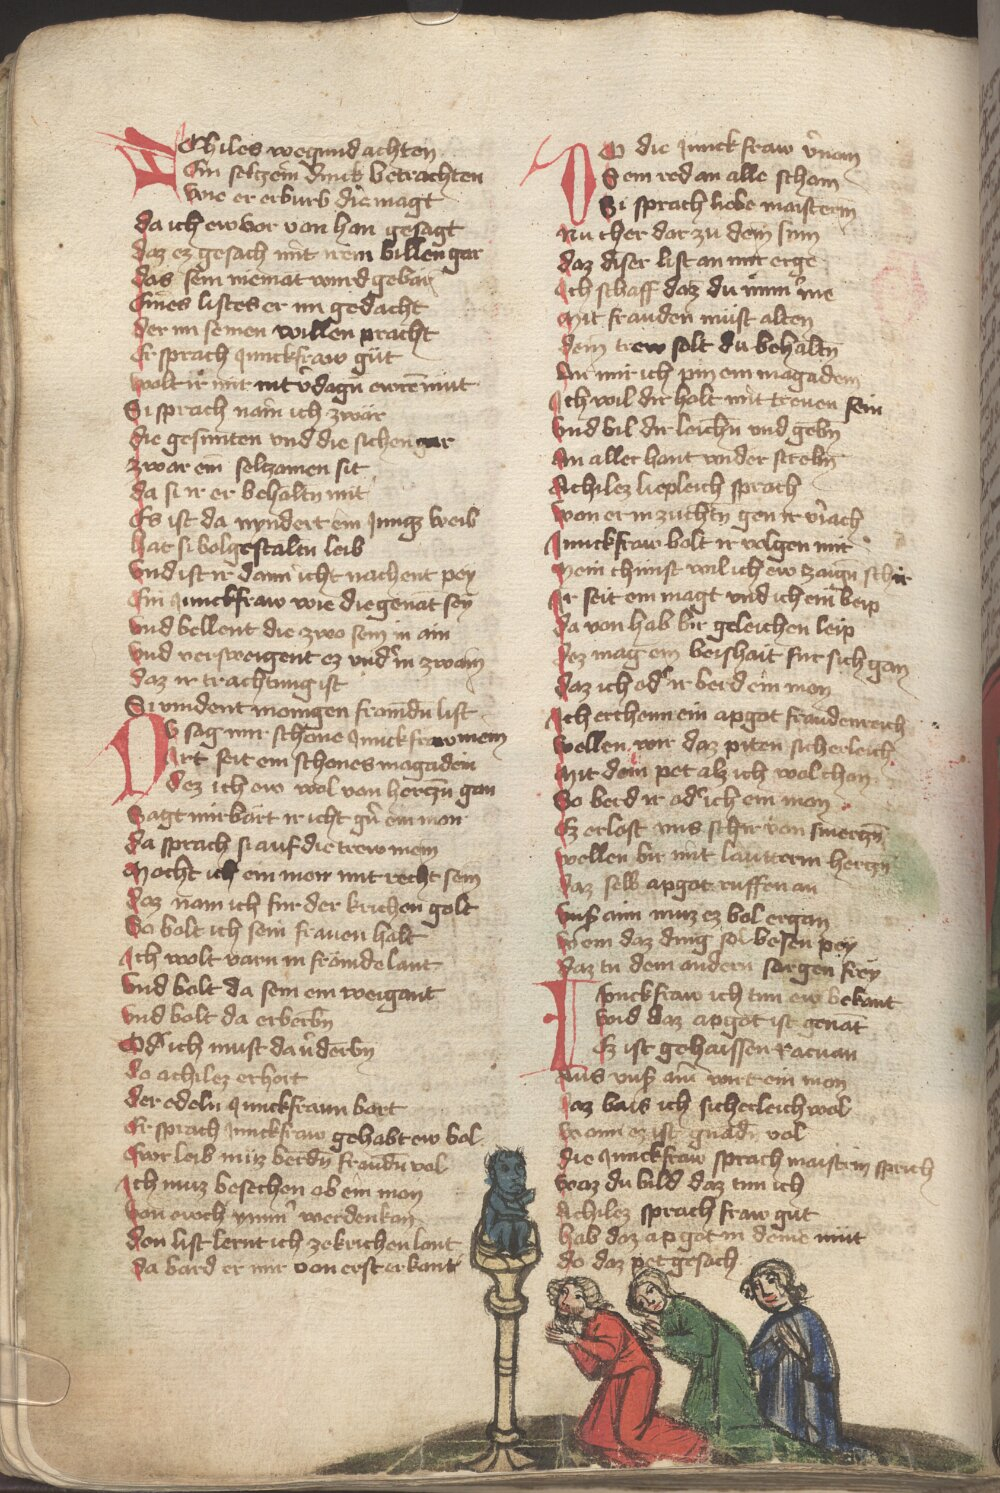 Achiles wegund achten
Ein selczein dinck betrachten
Wie er erburb die magt
da ich ew vor von han gesagt
daz ez gesach mit irem billen gar
das sein niemat wurd gebar
Eines listes er im gedacht
der im seinen willen pracht
Er sprach Junckfraw gut
wolt ir mir nit v̓dagn ewrē mut
Si sprach nain ich zwar
die gesunten vnd die sichen gar
zwar ein selczamen sit
da si ir er behaltn mit
Es ist da nyndert ein Jungs weib
hat si bolgestaltn leib
vnd ist ir dann icht nachent pey
Ein Junckfraw wie die genāt sey
vnd bellent die zwo sein in ain
vnd versweigent ez vnd̓ in zwain
daz ir trachtung ist
Si vindent manigen fromdn list
Nu sag mir schone Junckfraw mein
Art seit ein schones magadein
dez ich ew wol von herczn gan
Sagt mir bart ir icht g̓n ein man
da sprach si auf die trew mein
Mocht ich ein man mit recht sein
daz nam ich fur der krichen golt
So bolt ich sein frauen halt
Ich wolt varn in fromde lant
vnd bolt da sein ein weigant
vnd bolt da erberbn
Od̓ ich must da v̓derbn
do achilez erhort
der edeln Junckfraun bort
Er sprach Junckfraw gehabt ew bol
Ewr leib muz berdn fraudn vol
Ich muz besechen ob ein man
von ewch ymm̓ werden kan
den list lernt ich ze krichen lant
da bard er mir von erst erkant
Do die Junckfraw v̓nam
Sein red an alle scham
Si sprach liebe maisterin
Nu cher dar zu dein sin
daz diser list an mir erge
Ich schaff daz du nimm̓ me
Mit frauden must alten
dein trew solt du behaltn
An mir ich pin ein magadein
Ich wil dir holt mit treuen sein
vnd bil dir leichn vnd gebn
An aller hant wider strebn
Achilez liepleich sprach
wan er in zuchtn gen ir v̓iach
Junckfraw bolt ir volgen mir
Mein chunst wil ich ew zaign schir
Ir seit ein magt vnd ich ein beip
da von hab bir geleichen leip
dez mag ein beishait fur sich gan
daz ich od̓ ir berd ein man
Ich erchenn ein apgot fraudenreich
wellen wir daz piten sicherleich
Mit dem pet alz ich wol chan
So berd ir od̓ ich ein man
Ez erlost vns schir von smerczn
wellen bir mit lautterm herczn
daz selb apgot ruffen an
vns̓ aim muz ez bol ergan
wem daz ding sol besen pey
daz tu dem andern sorgen frey
Junckfraw ich tun ew bekant
wid daz apgot ist genāt
Ez ist gehaissen Racnan
Aus vns̓ aim wirt ein man
daz bais ich sicherleich wol
wann ez ist gnadn vol
die Junckfraw sprach maistrin sprich
waz du bild daz tun ich
Achilez sprach fraw gut
hab daz apgot in deine mut
do daz pet gesach